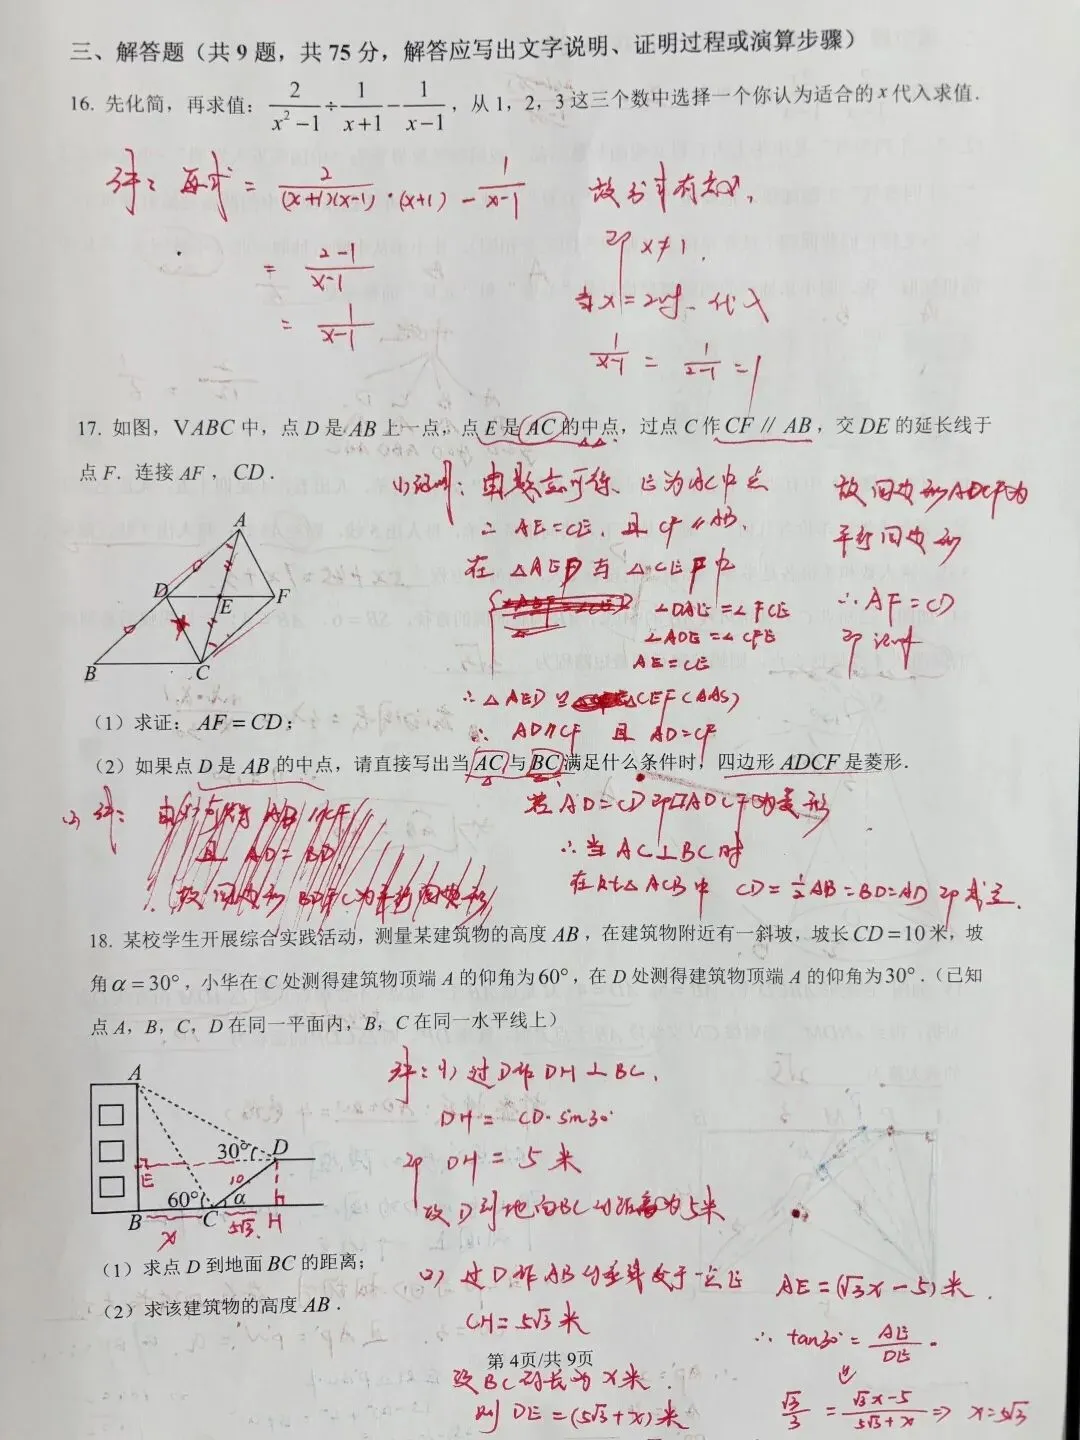 三、解答题（共9题，共75分，解答应写出文字说明、证明过程或演算步骤）
16. 先化简，再求值：2/(x²−1) ÷ 1/(x+1) − 1/(x−1)，从1，2，3这三个数中选择一个你认为适合的x代入求值．
解：原式 = 2/((x+1)(x−1)) · (x+1) − 1/(x−1)
= (2−1)/(x−1)
= 1/(x−1)
故分式有意义，
即 x≠1．
当x=2时，代入
1/(x−1) = 1/(2−1) = 1
17. 如图，VABC中，点D是AB上一点，点E是AC的中点，过点C作CF // AB，交DE的延长线于
点F．连接AF，CD．
A
D
E
F
B
C
(1)证明：由题意可得，E为AC中点
∴ AE=CE，且CF∥AB，
在 △AED与△CEF中
∠DAE=∠FCE
∠ADE=∠CFE
AE=CE
∴ △AED≌△CEF(AAS)
∴ AD∥CF 且 AD=CF
故四边形ADCF为
平行四边形
∴ AF=CD
即证明
（1）求证：AF=CD；
（2）如果点D是AB的中点，请直接写出当AC与BC满足什么条件时，四边形ADCF是菱形．
(2) 解：
且 AD=BD
若AD=CD即▱ADCF为菱形
∴当AC⊥BC时
在Rt△ACB中 CD=½AB=BD=AD 即成立．
18. 某校学生开展综合实践活动，测量某建筑物的高度AB，在建筑物附近有一斜坡，坡长CD=10米，坡
角α=30°，小华在C处测得建筑物顶端A的仰角为60°，在D处测得建筑物顶端A的仰角为30°．（已知
点A，B，C，D在同一平面内，B，C在同一水平线上）
A
30° D
E
10
60° α
B C H
x 5√3
解：(1) 过D作DH⊥BC，
DH= CD·sin30°
即 DH=5米
故D到地面BC的距离为5米
（1）求点D到地面BC的距离；
（2）求该建筑物的高度AB．
(2) 过D作AB的垂线交于一点E
CH=5√3米
设BC的长为x米．
则 DE=(5√3+x)米
AE=(√3x−5)米．
∴ tan30°= AE/DE
√3/3 = (√3x−5)/(5√3+x) ⇒ x=5√3
第 4页/共 9页